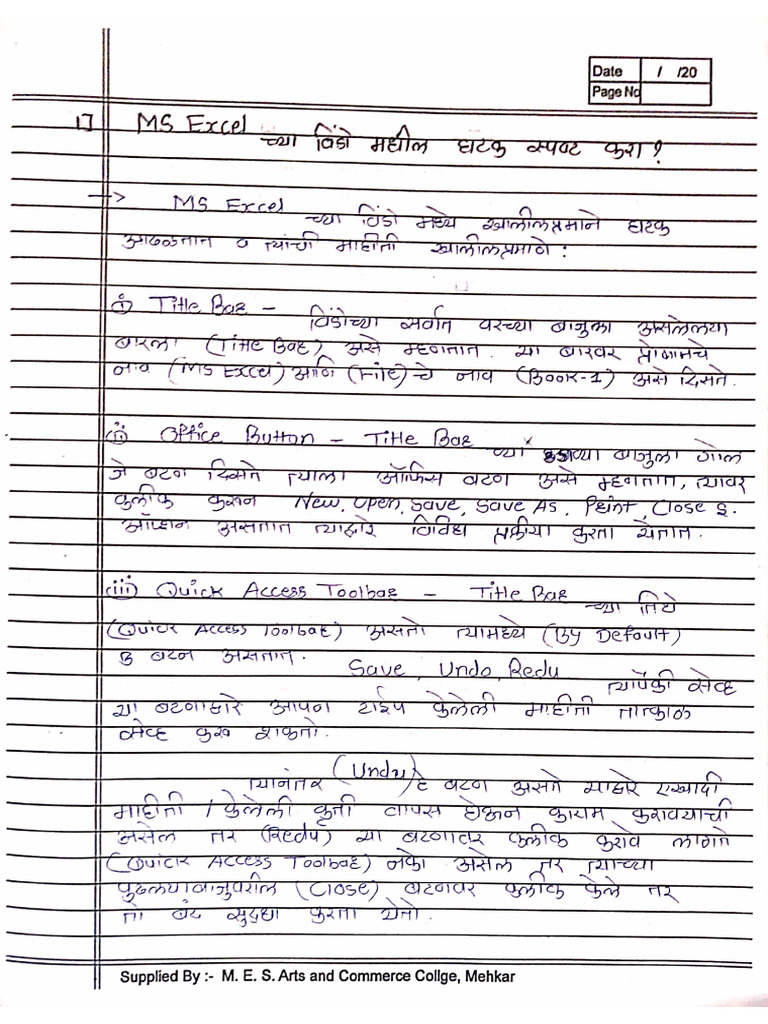 Date / /20
Page No
1] MS Excel च्या विंडो मधील घटक स्पष्ट करा?
--> MS Excel च्या विंडो मध्ये खालीलप्रमाने घटक
आढळतात व त्यांची माहीती खालीलप्रमाणे :
i) Title Bar - विंडोच्या सर्वात वरच्या बाजुला असलेलया
बारला (Title Bar) असे म्हणतात. या बारवर प्रोग्रामचे
नाव (MS Excel) आणि (File) चे नाव (Book-1) असे दिसते.
ii) Office Button - Title Bar च्या डाव्या बाजुला गोल
जे बटण दिसते त्याला ऑफिस बटण असे म्हणतात, त्यावर
क्लीक करून New, Open, Save, Save As, Print, Close इ.
ऑप्शन असतात त्याद्वारे विविध प्रक्रीया करता येतात.
iii) Quick Access Toolbar - Title Bar च्या तिथे
(Quick Access Toolbar) असतो त्यामध्ये (By Default)
३ बटन असतात. Save, Undo, Redu त्यापैकी सेव्ह
या बटणाद्वारे आपण टाईप केलेली माहीती तात्काळ
सेव्ह करू शकतो.
त्यानंतर (Undu) हे बटण असते याद्वारे एखादी
माहीती / केलेली कृती वापस होऊन कायम करावयाची
असेल तर (Redu) या बटणावर क्लीक करावे लागते
(Quick Access Toolbar) नको असेल तर त्याच्या
पुढलयाबाजुवरील (Close) बटणवर क्लीक केले तर
तो बंद सुद्धा करता येतो.
Supplied By :- M. E. S. Arts and Commerce Collge, Mehkar